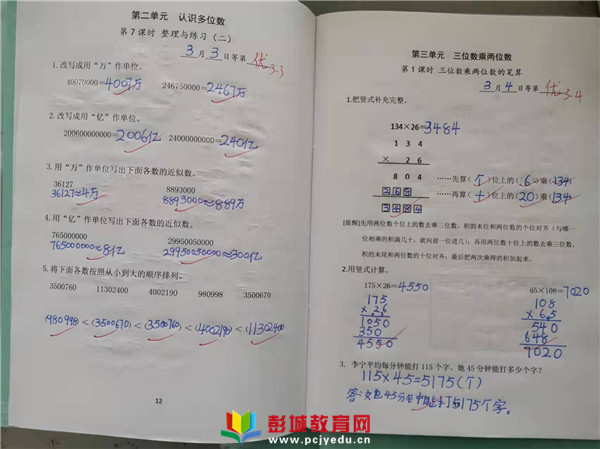 第二单元 认识多位数
第 7 课时 整理与练习（二）
3月3日等第优3.3
1.改写成用“万”作单位。
40070000=4007万 246750000=24675万
2.改写成用“亿”作单位。
200600000000=2006亿 24000000000=240亿
3.用“万”作单位写出下面各数的近似数。
36127 8893000
36127≈4万 8893000≈889万
4.用“亿”作单位写出下面各数的近似数。
765000000 29950050000
765000000≈8亿 29950050000≈300亿
5.将下面各数按照从小到大的顺序排列。
3500760 11302400 4002190 980998 3500670
(980998)<(3500670)<(3500760)<(4002190)<(11302400)
12
第三单元 三位数乘两位数
第 1 课时 三位数乘两位数的笔算
3月4日等第优3.4
1.把竖式补充完整。
134×26=3484
1 3 4
× 2 6
8 0 4 ……先算（个）位上的（6）乘（134）
2 6 8 ……再算（十）位上的（20）乘（134）
3 4 8 4
[提醒]先用两位数个位上的数去乘三位数，积的末位和两位数的个位对齐（与哪一
位相乘的积满几十，就向前一位进几）；再用两位数十位上的数去乘三位数，
积的末尾和两位数的十位对齐；最后把两次乘得的积加起来。
2.用竖式计算。
175×26=4550 65×108=7020
175 108
×26 ×65
1050 540
350 648
4550 7020
3. 李宁平均每分钟能打 115 个字。她 45 分钟能打多少个字？
115×45=5175(个)
答:她45分钟能打5175个字。
彭城教育网
www.pcjyedu.cn